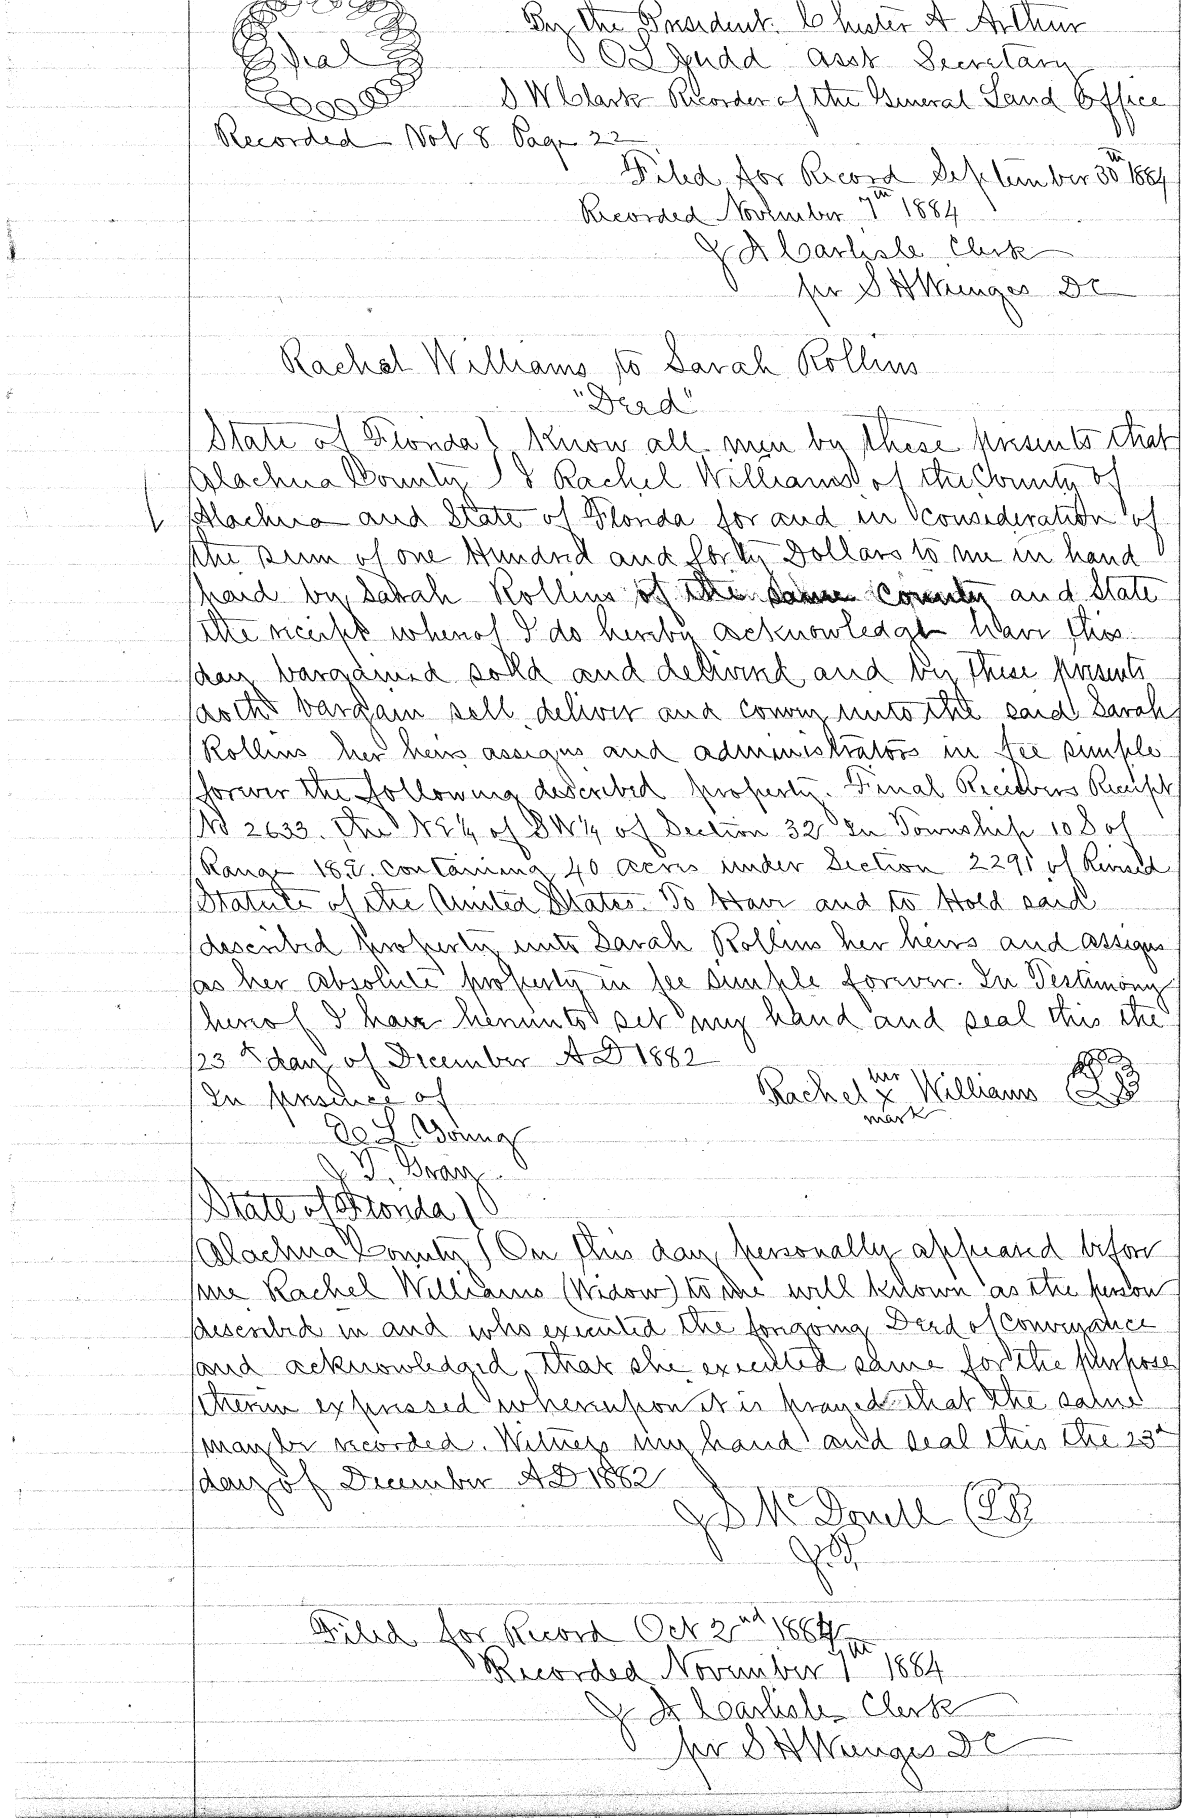 Seal
By the President. Chester A Arthur
O L Judd asst Secretary
S W Clark Recorder of the General Land Office
Recorded Vol 8 Page 22
Filed for Record September 30th 1884
Recorded November 7th 1884
J A Carlisle Clerk
pr S H Wienges DC
Rachel Williams to Sarah Rollins
"Deed"
State of Florida } Know all men by these presents that
Alachua County } I Rachel Williams of the County of
Alachua and State of Florida for and in consideration of
the sum of one Hundred and forty Dollars to me in hand
paid by Sarah Rollins of the same County and State
the receipt whereof I do hereby acknowledge have this
day bargained sold and delivered and by these presents
doth bargain sell deliver and convey unto the said Sarah
Rollins her heirs assigns and administrators in fee simple
forever the following described property. Final Receivers Receipt
No 2633. The NE¼ of SW¼ of Section 32 In Township 10 S of
Range 18 E. containing 40 acres under Section 2291 of Revised
Statute of the United States. To Have and to Hold said
described property unto Sarah Rollins her heirs and assigns
as her absolute property in fee simple forever. In Testimony
hereof I have hereunto set my hand and seal this the
23d day of December AD 1882
In presence of
Rachel her x mark Williams LS
L Young
J T. Gray
State of Florida }
Alachua County } On this day personally appeared before
me Rachel Williams (Widow) to me well known as the person
described in and who executed the forgoing Deed of Conveyance
and acknowledged that she executed same for the purpose
therein expressed whereupon it is prayed that the same
may be recorded. Witness my hand and seal this the 23d
day of December AD 1882
J S McDonell (LS)
J.P.
Filed for Record Oct 2nd 1884
Recorded November 7th 1884
J A Carlisle Clerk
pr S H Wienges DC